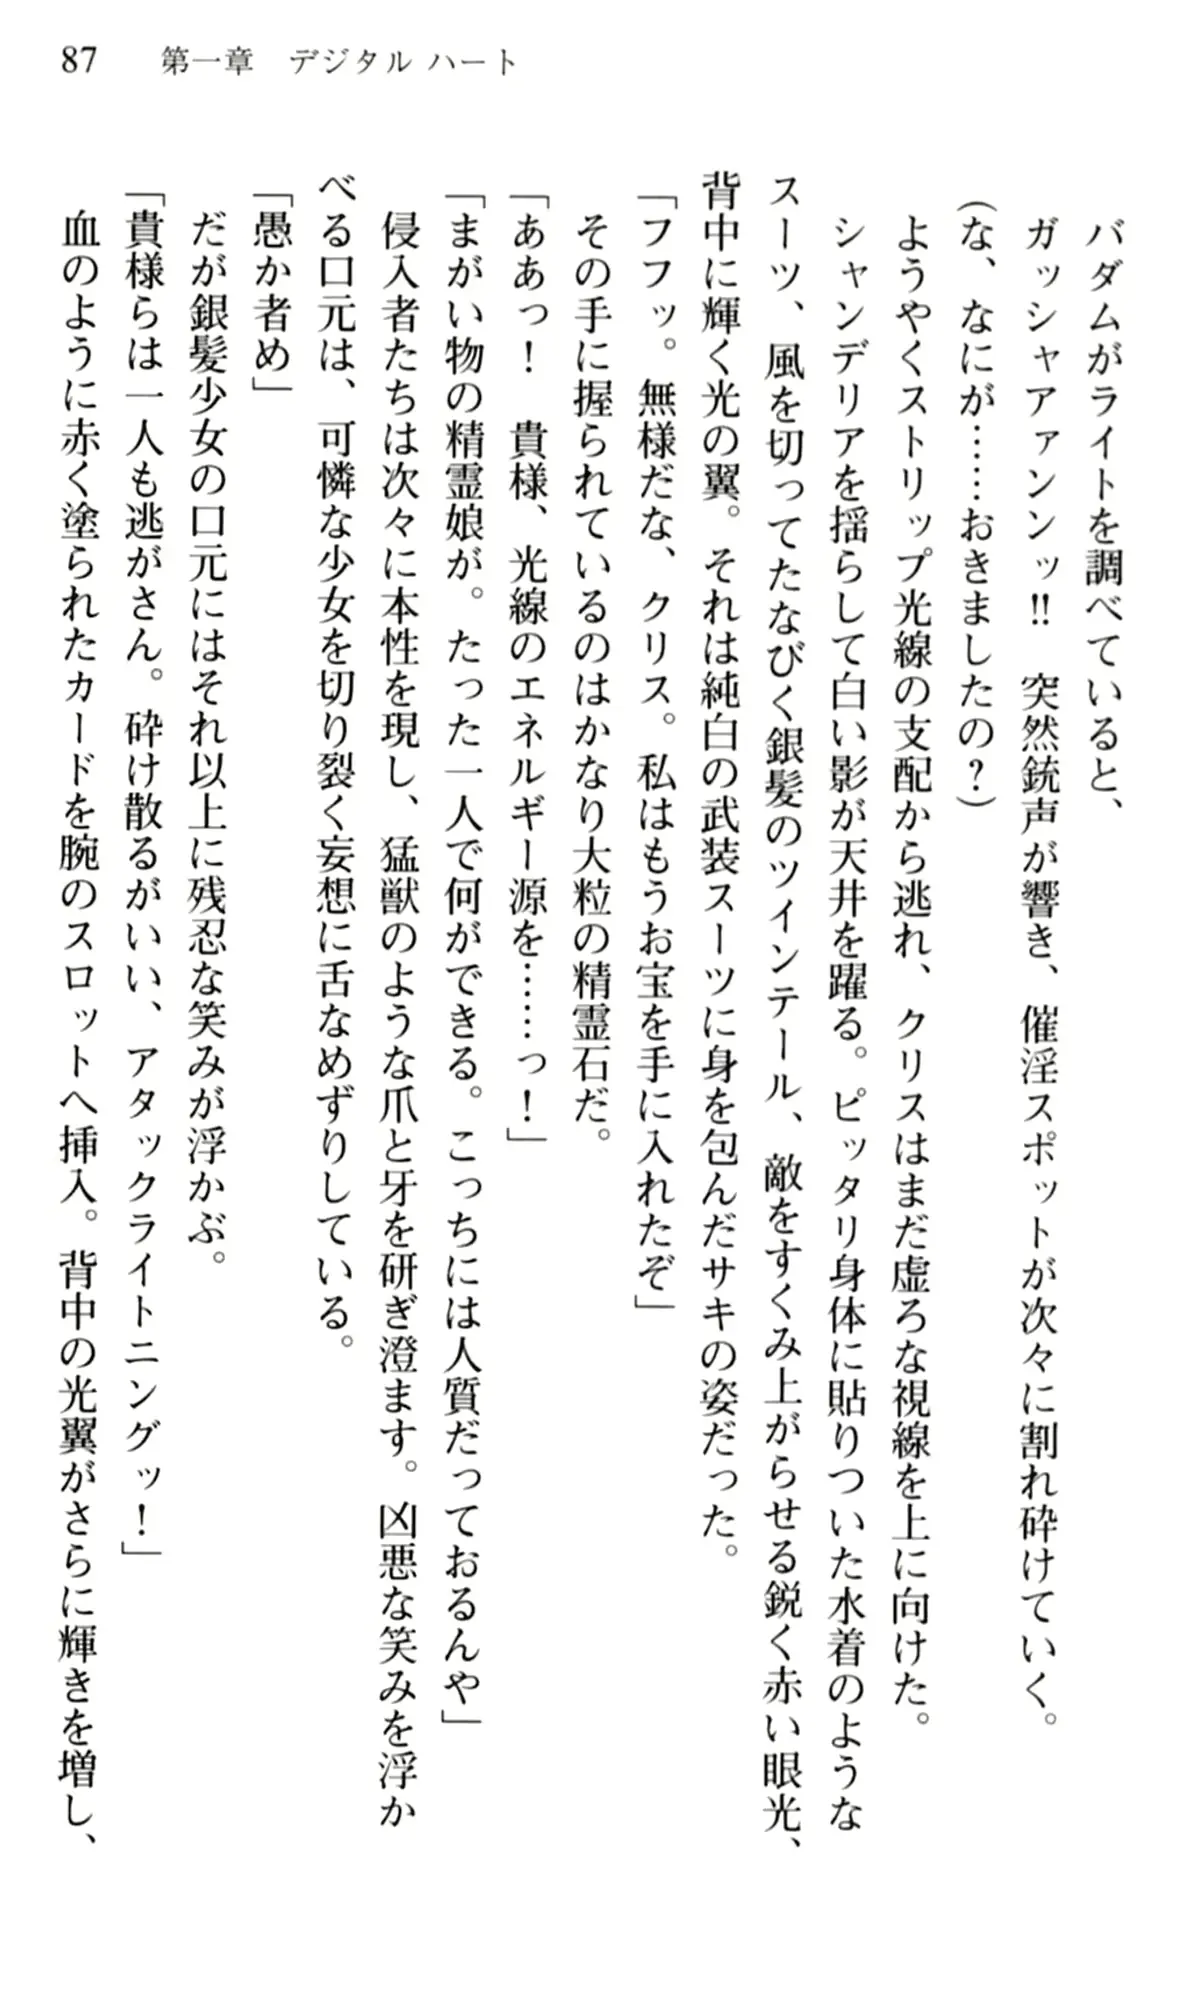 87　第一章　デジタル ハート
バダムがライトを調べていると、
ガッシャアァンンッ!!　突然銃声が響き、催淫スポットが次々に割れ砕けていく。
(な、なにが……おきましたの?)
ようやくストリップ光線の支配から逃れ、クリスはまだ虚ろな視線を上に向けた。
シャンデリアを揺らして白い影が天井を躍る。ピッタリ身体に貼りついた水着のような
スーツ、風を切ってたなびく銀髪のツインテール、敵をすくみ上がらせる鋭く赤い眼光、
背中に輝く光の翼。それは純白の武装スーツに身を包んだサキの姿だった。
「フフッ。無様だな、クリス。私はもうお宝を手に入れたぞ」
その手に握られているのはかなり大粒の精霊石だ。
「ああっ!　貴様、光線のエネルギー源を……っ!」
「まがい物の精霊娘が。たった一人で何ができる。こっちには人質だっておるんや」
侵入者たちは次々に本性を現し、猛獣のような爪と牙を研ぎ澄ます。凶悪な笑みを浮か
べる口元は、可憐な少女を切り裂く妄想に舌なめずりしている。
「愚か者め」
だが銀髪少女の口元にはそれ以上に残忍な笑みが浮かぶ。
「貴様らは一人も逃がさん。砕け散るがいい、アタックライトニングッ!」
血のように赤く塗られたカードを腕のスロットへ挿入。背中の光翼がさらに輝きを増し、